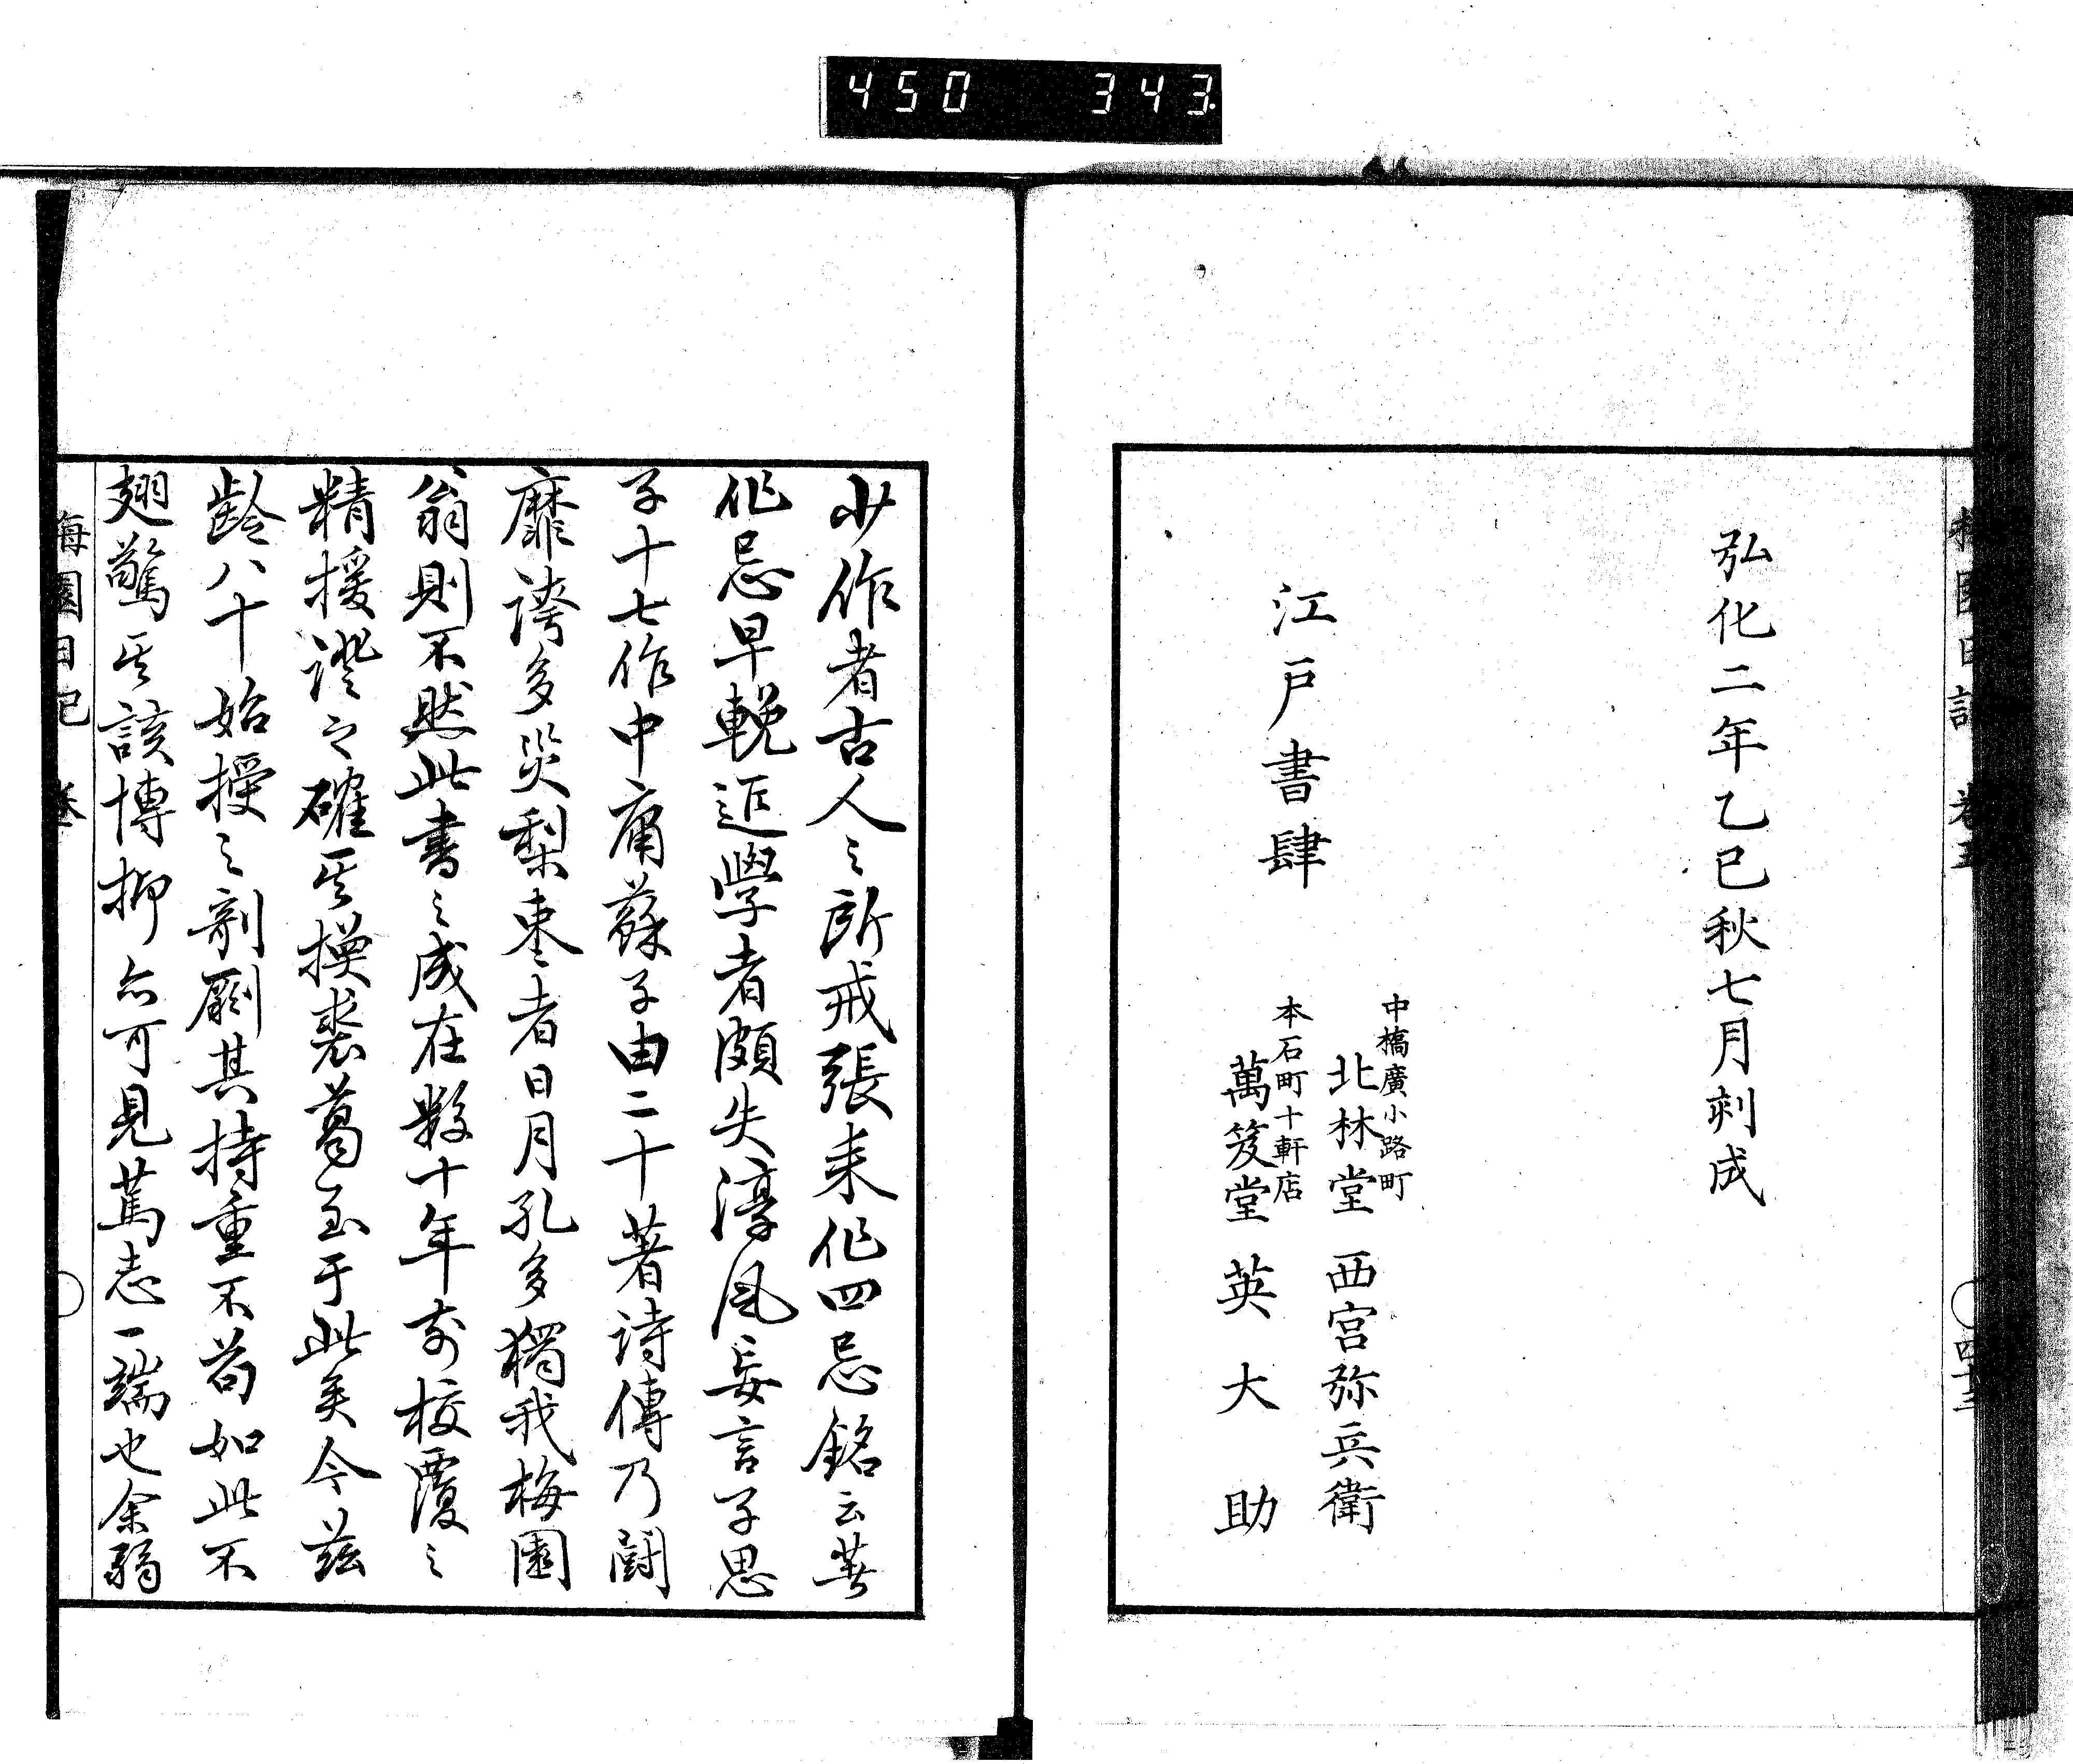 450 343
梅園日記 卷五
四十三
弘化二年乙巳秋七月刻成
江戸書肆
中橋廣小路町
北林堂 西宮弥兵衛
本石町十軒店
萬笈堂 英大助
少作者古人之所戒張耒作四忌銘云著
作忌早輓近學者頗失淳風妄言子思
子十七作中庸蘇子由二十著詩傳乃鬪
靡誇多災梨棗者日月孔多獨我梅園
翁則不然此書之成在數十年前校覆之
精援證之確其換裘葛至于此矣今茲
齡八十始授之剞劂其持重不苟如此不
翅驚其該博抑亦可見篤志一端也余弱
梅園日記 卷